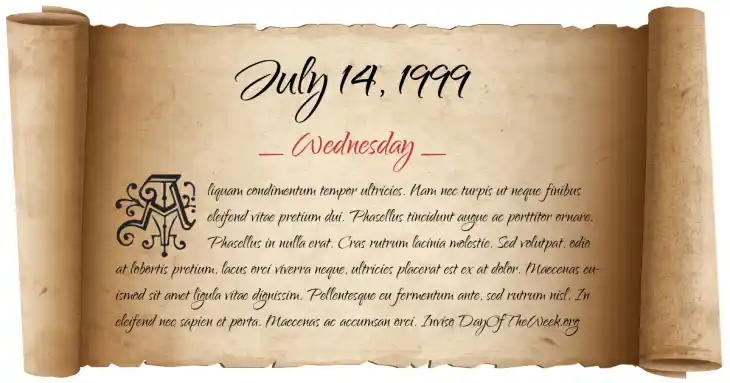 July 14, 1999
— Wednesday —
Aliquam condimentum tempor ultricies. Nam nec turpis ut neque finibus
eleifend vitae pretium dui. Phasellus tincidunt augue ac porttitor ornare.
Phasellus in nulla erat. Cras rutrum lacinia molestie. Sed volutpat, odio
at lobortis pretium, lacus orci viverra neque, ultricies placerat est ex at dolor. Maecenas eu-
ismod sit amet ligula vitae dignissim. Pellentesque eu fermentum ante, sed rutrum nisl. In
eleifend nec sapien et porta. Maecenas ac accumsan orci. Inviso DayOfTheWeek.org